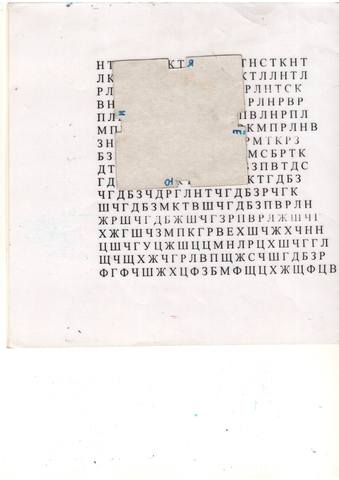 НТ КТ Я ТНСТКНТ
ЛК КТЛЛНТЛ
РЛ РЛНТСК
ВН РЛНРВР
ПЛ И ПВЛНРПЛ
МП Е КМПРЛНВ
ЗН РМТКРЗ
БЗ МСБРТК
ДТ ЗПВТДС
ГД Ю КТГДБЗ
ЧГДБЗЧДРГЛНТЧГДБЗРЧГК
ШЧГДБЗМКТВШЧГДБЗПВРЛН
ЖРШЧГДБЖШЧГЗРПВРЛЖШЧГ
ХЖГШЧЗМПКГРВЕХШЧЖХЧНН
ЦШЧГУЦЖШЦЦМНЛРЦХШЧГГЛ
ЩЧЩХЖЧГРЛВПЩЖСЧШГДБЗР
ФГФЧШЖХЦФЗБМФЩЦХЖЩФЦВ